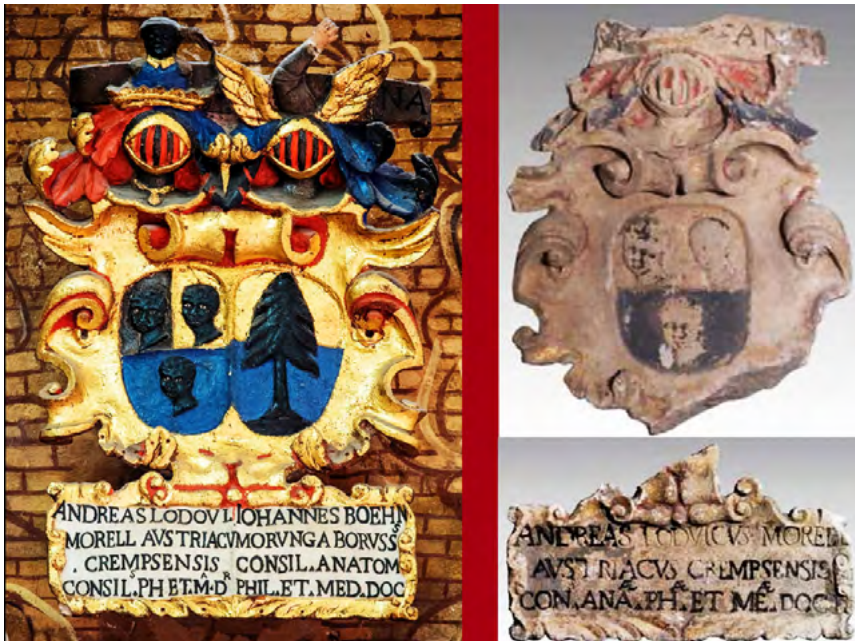 NA
ANDREAS LODOVI. IOHANNES BOEHN
MORELL AVSTRIACV MORVNGA BORVSS
. CREMPSENSIS CONSIL. ANATOM
CONSIL. PH ET. M. D. PHIL. ET. MED. DOC
AN
ANDREAS LODVICVS MORELL
AVSTRIACVS CREMPSENSIS
CON. ANA. PH. ET ME. DOC